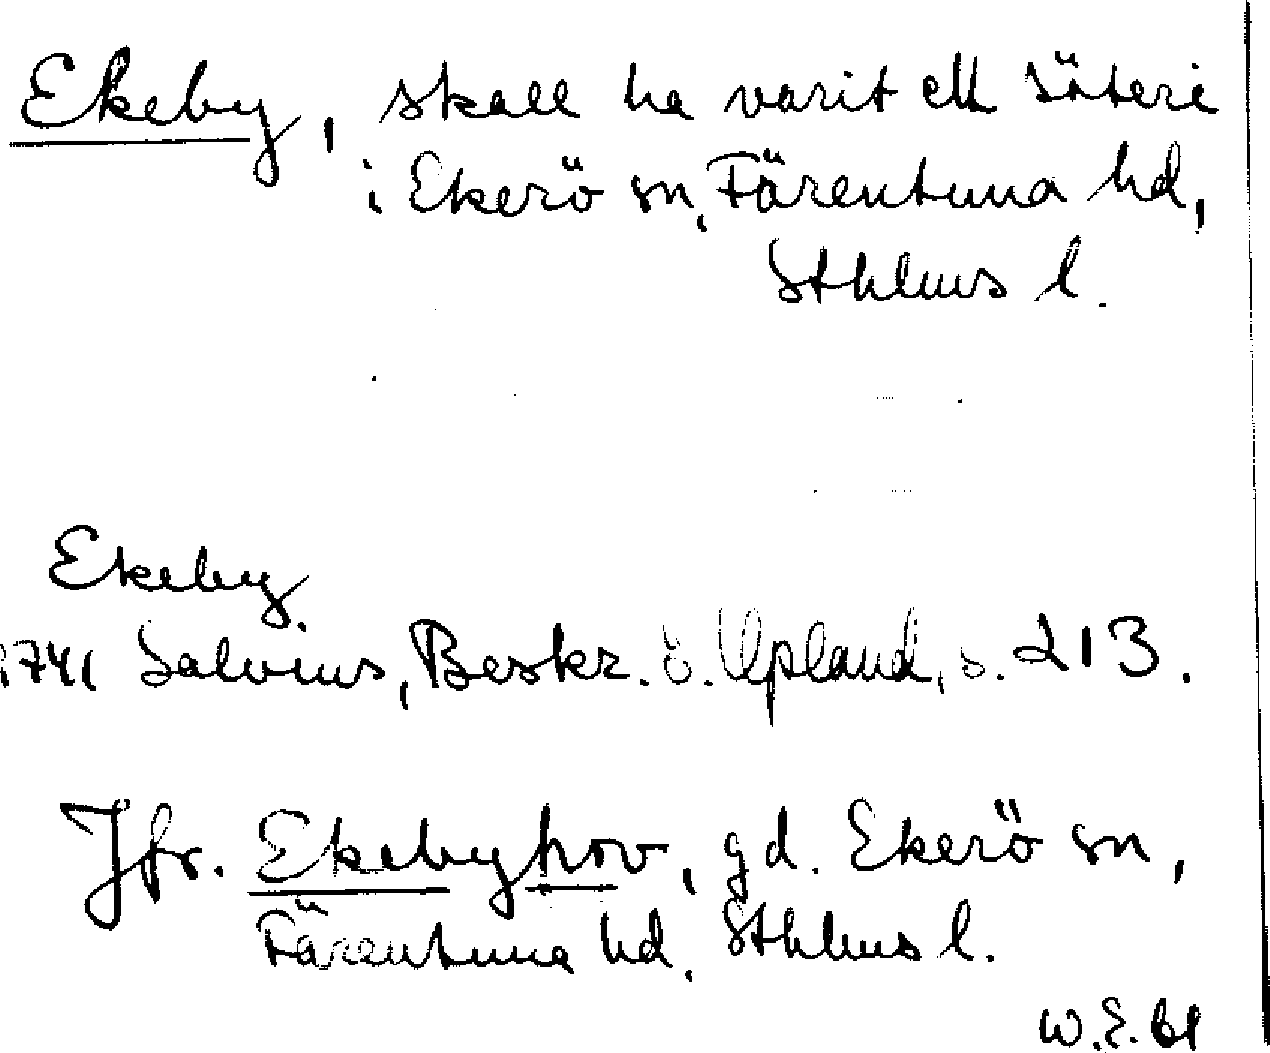 Ekeby, skall ha varit ett säteri
i Ekerö sn, Färentuna hd,
Sthlms l.
Ekeby.
1741 Salvius, Beskr. ö. Upland, s. 213.
Jfr. Ekebyhov, gd. Ekerö sn,
Färentuna hd, Sthlms l.
W.E. bl